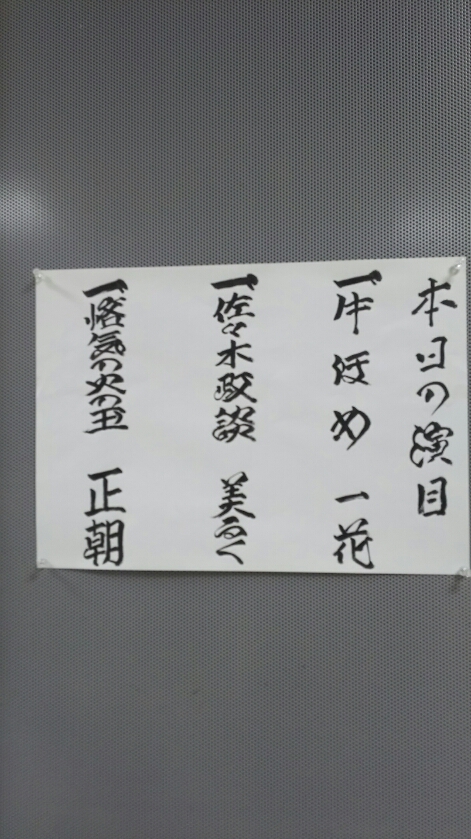 本日の演目
一牛ほめ 一花
一佐々木政談 美るく
一悋気の火の玉 正朝